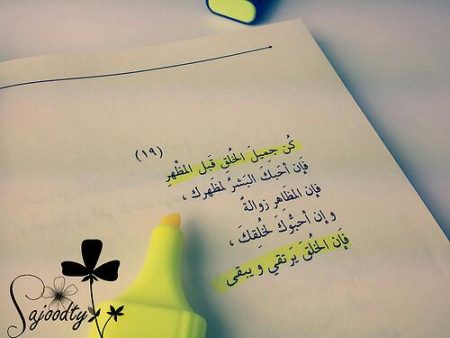 (١٩)
كُن جميلَ الخُلقِ قَبل المَظْهر
فَإن أحَبكَ البَشرُ لمظهرك ،
فإن المظَاهر زوالةٌ
وإن أحبُّوكَ لخُلقِكَ ،
فَإن الخُلقَ يَرتقي و يبقى
Sajoodty